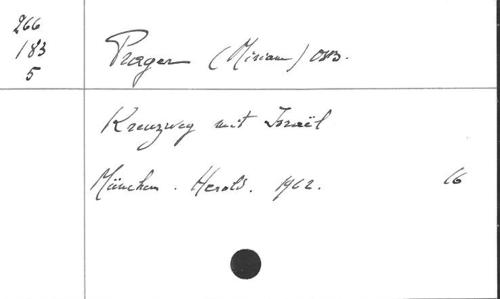 266
183
5
Prager (Miriam) OSB.
Kreuzweg mit Israël
München. Herold. 1962.
16